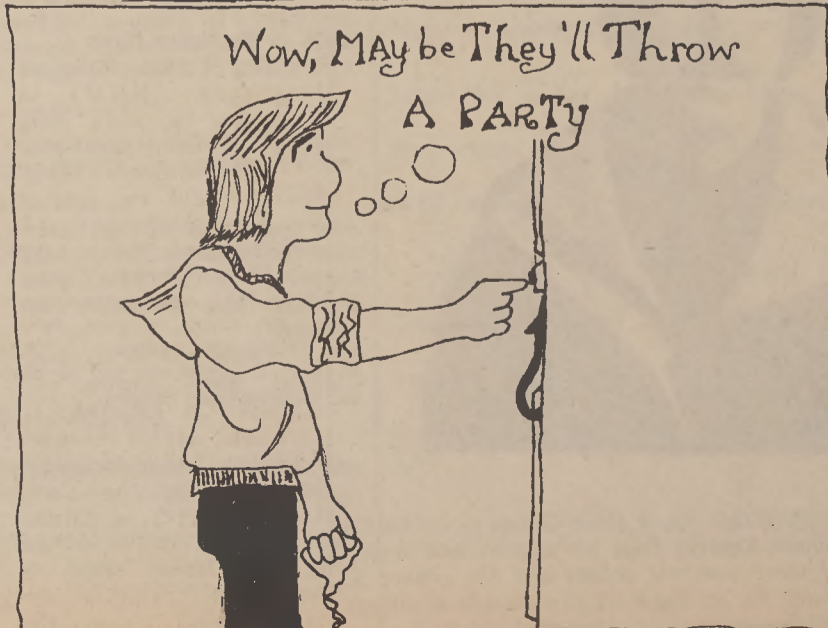 Wow, MAybe They'll Throw
A PARTy